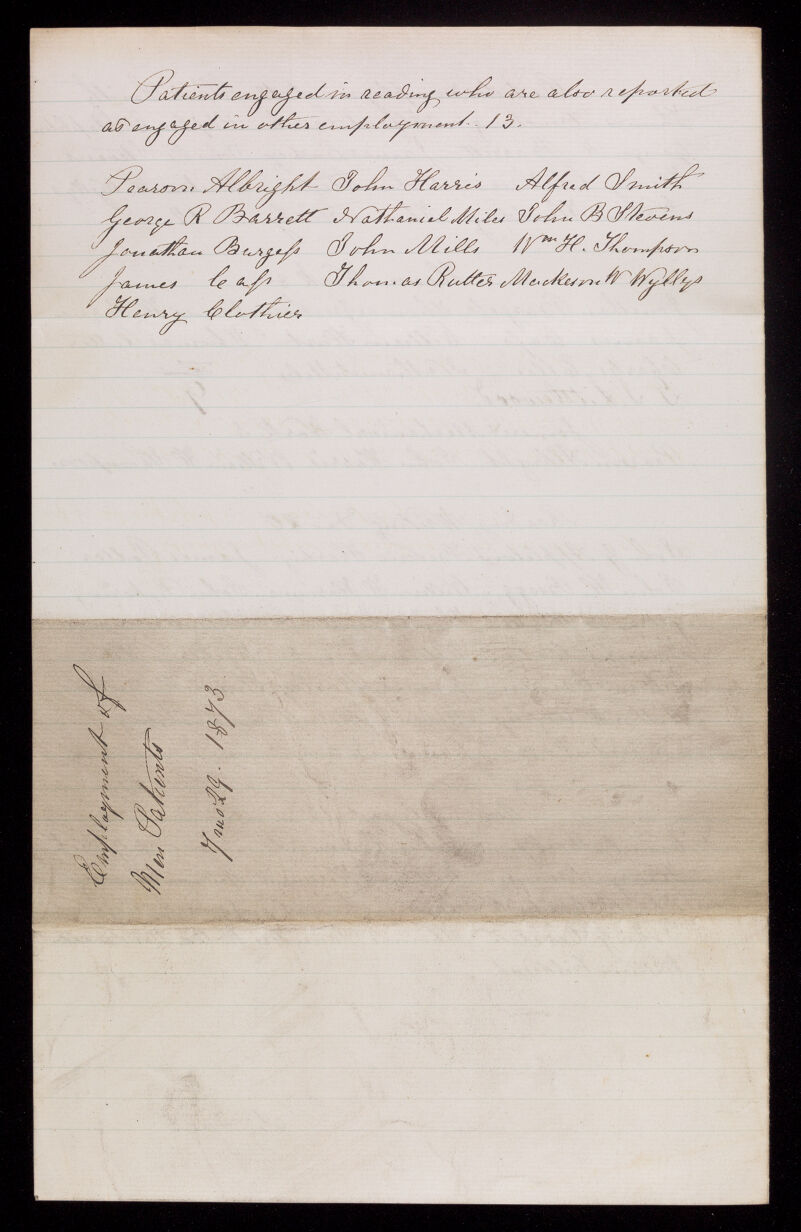 Patients engaged in reading who are also reported
as engaged in other employment. 13.
Pearson Albright John Harris Alfred Smith
George R Barrett Nathaniel Miles John B Stevens
Jonathan Burgess John Mills Wm H. Thompson
James Cass Thomas Rutter Mackeson W Wyllys
Henry Clothier
Employment of
Men Patients
7 mo 29. 1873